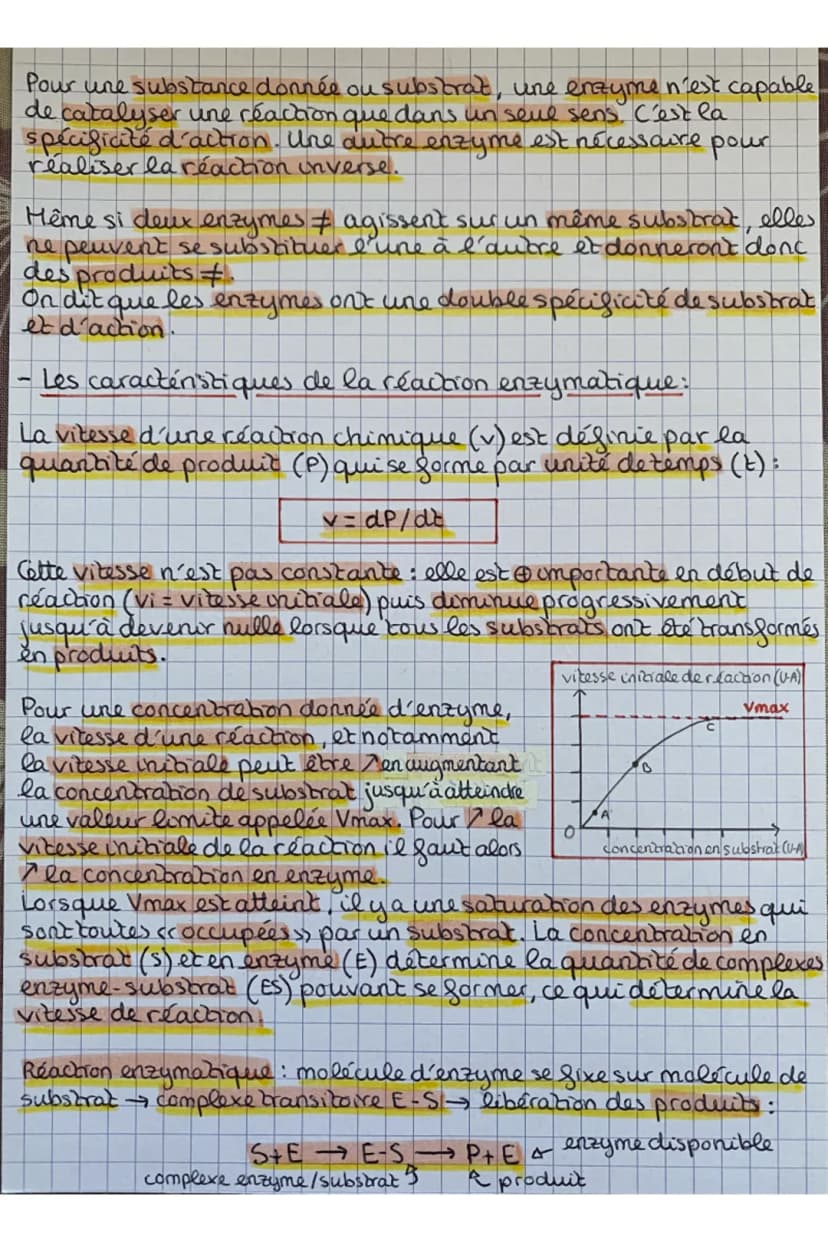 Pour une substance donnée ou substrat, une enzyme n'est capable
de catalyser une réaction que dans un seul sens. C'est la
spécificité d'action. Une autre enzyme est nécessaire pour
réaliser la réaction inverse.
Même si deux enzymes ≠ agissent sur un même substrat, elles
ne peuvent se substituer l'une à l'autre et donneront donc
des produits ≠.
On dit que les enzymes ont une double spécificité de substrat
et d'action.
- Les caractéristiques de la réaction enzymatique :
La vitesse d'une réaction chimique (v) est définie par la
quantité de produit (P) qui se forme par unité de temps (t) :
v = dP/dt
Cette vitesse n'est pas constante : elle est ⊕ importante en début de
réaction (Vi = vitesse initiale) puis diminue progressivement
jusqu'à devenir nulle lorsque tous les substrats ont été transformés
en produits.
Pour une concentration donnée d'enzyme,
la vitesse d'une réaction, et notamment
la vitesse initiale peut être ↗ en augmentant
la concentration de substrat jusqu'à atteindre
une valeur limite appelée Vmax. Pour ↗ la
vitesse initiale de la réaction il faut alors
↗ la concentration en enzyme.
vitesse initiale de réaction (U.A)
Vmax
C
B
A
0
concentration en substrat (U.A)
Lorsque Vmax est atteint, il y a une saturation des enzymes qui
sont toutes << occupées >> par un substrat. La concentration en
substrat (S) et en enzyme (E) détermine la quantité de complexes
enzyme-substrat (ES) pouvant se former, ce qui détermine la
vitesse de réaction.
Réaction enzymatique : molécule d'enzyme se fixe sur molécule de
substrat → complexe transitoire E-S → libération des produits :
S+E → E-S → P+E enzyme disponible
complexe enzyme/substrat produit